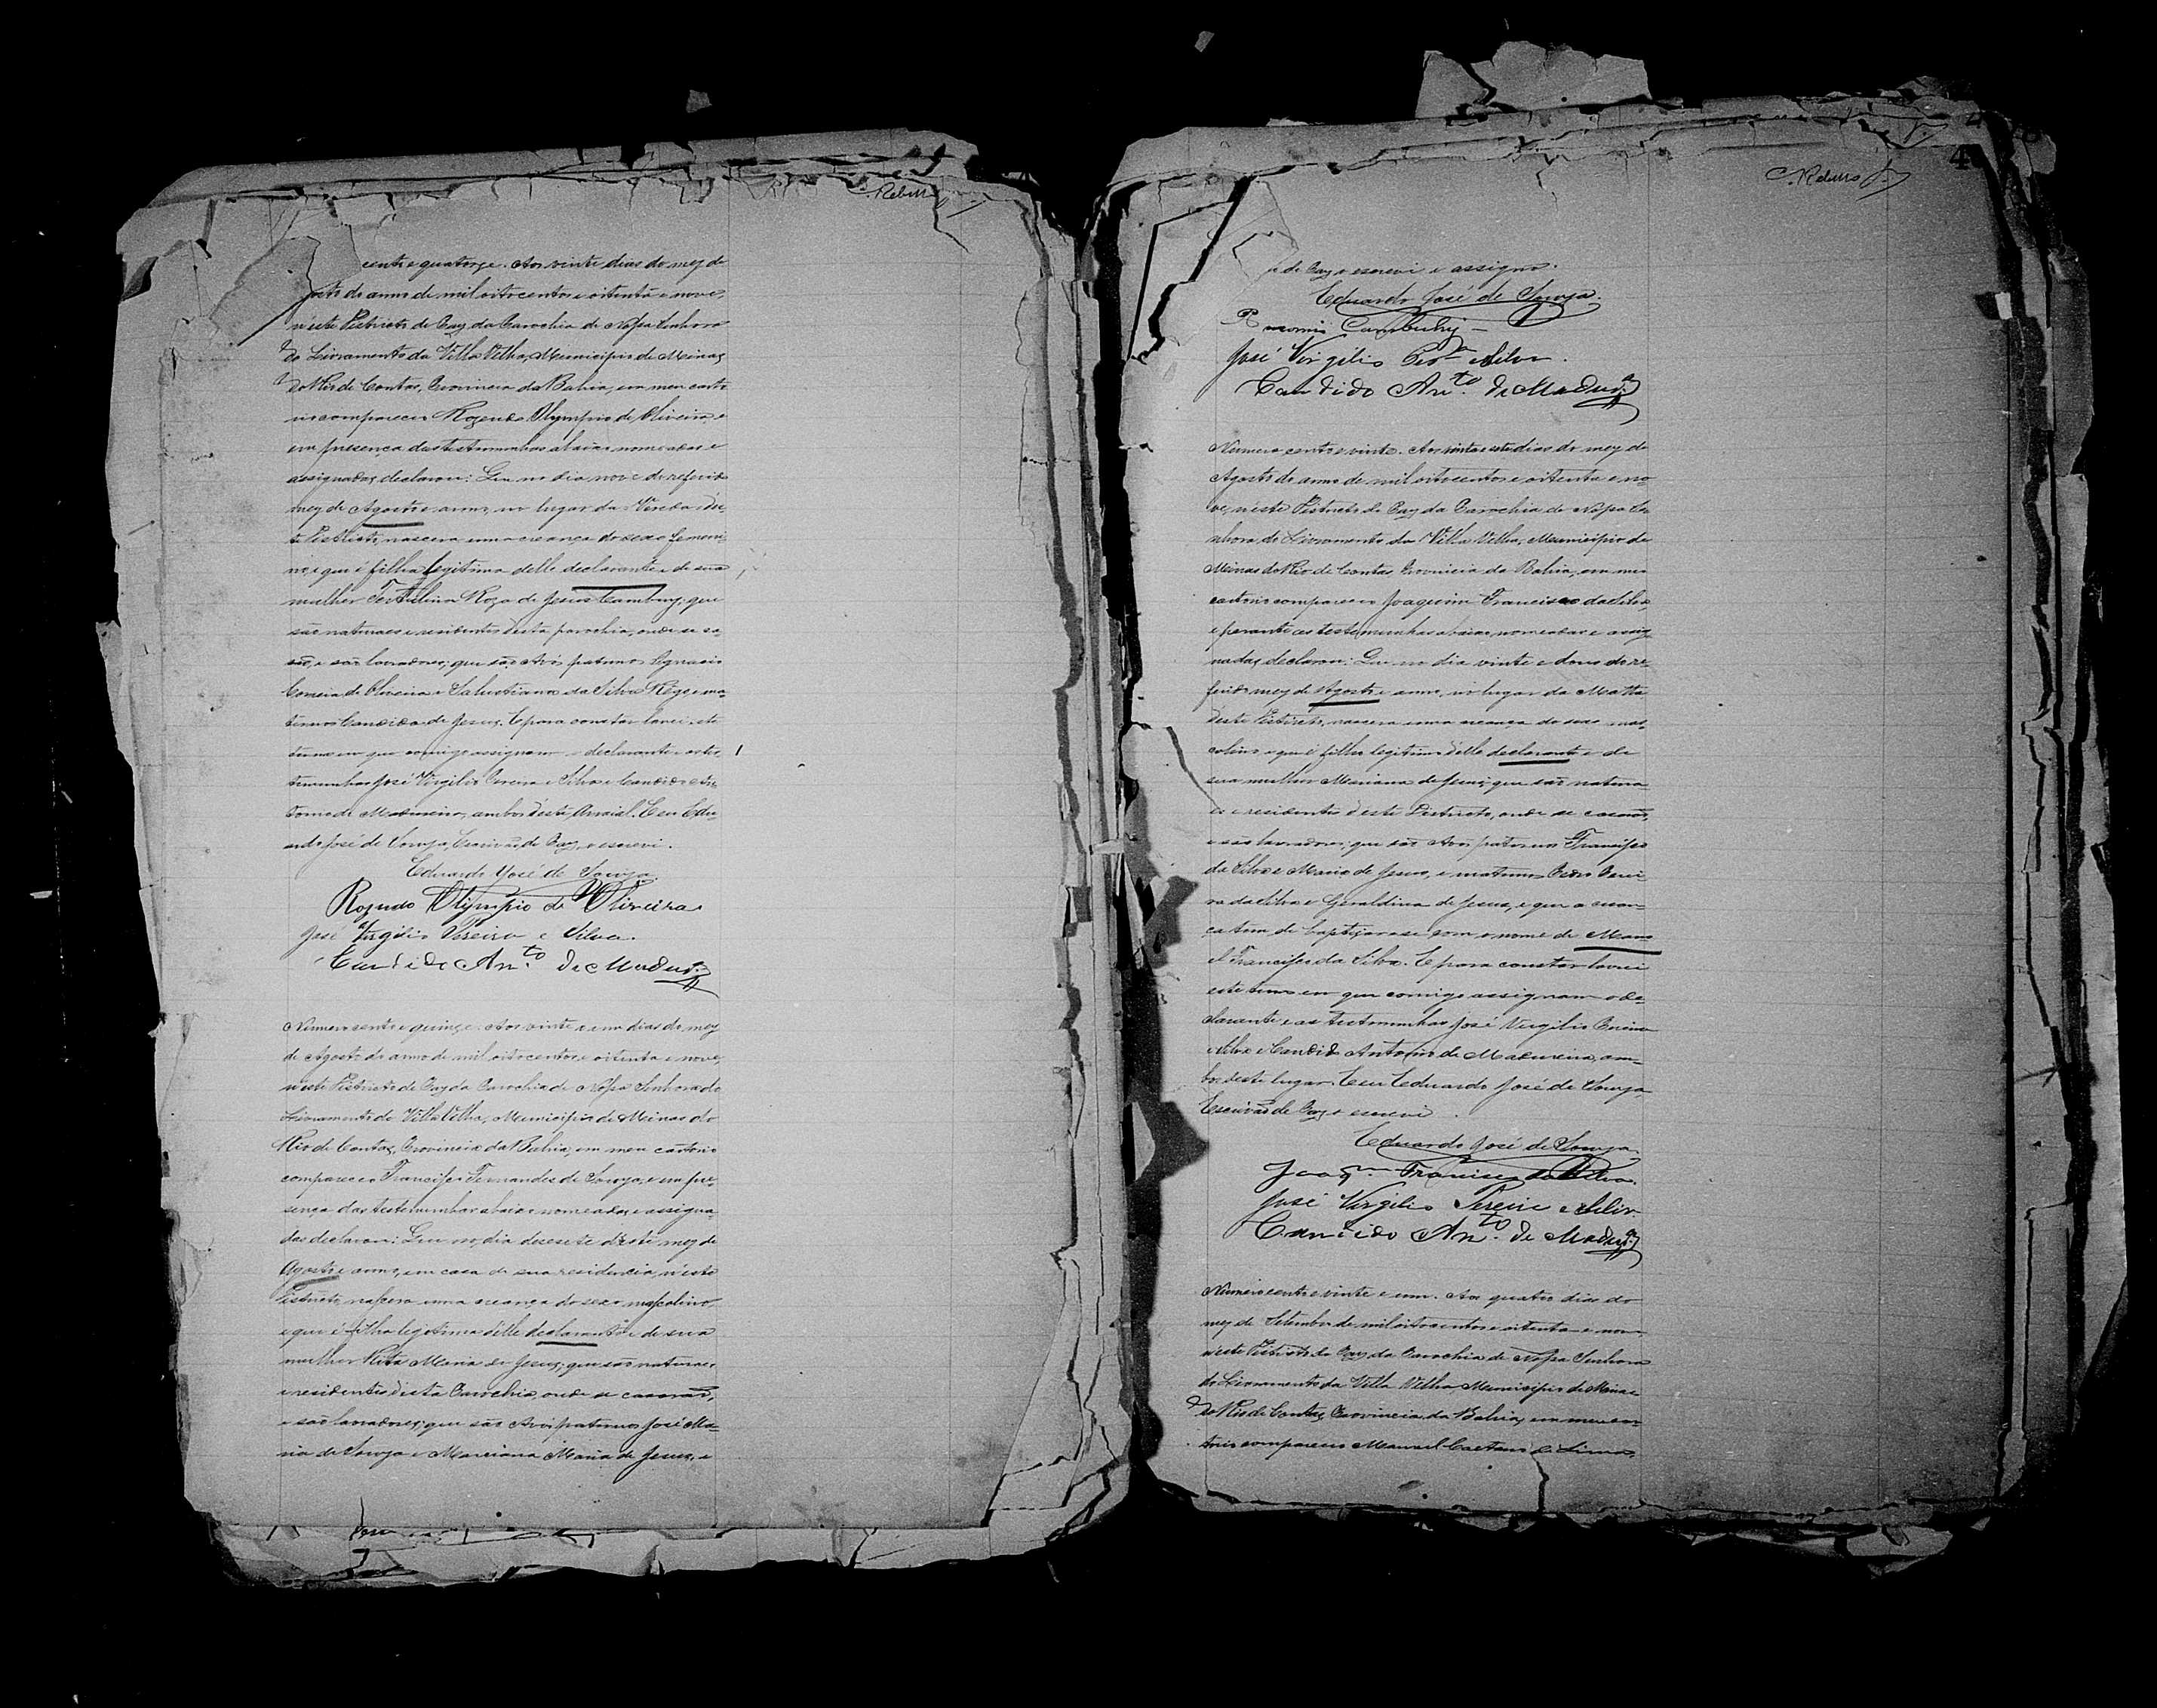 C. Rebello
cento e quatorze. Aos vinte dias do mez de
gosto do anno de mil oitocentos e oitenta e nove,
n'este Districto de Paz da Parochia de Nossa Senhora
do Livramento da Villa Velha, Municipio de Minas
do Rio de Contas, Provincia da Bahia, em meu carto
rio compareceu Rozendo Olympio de Oliveira, e
em presença das testemunhas abaixo nomeadas e
assignadas, declarou: Que no dia nove do referido
mez de Agosto e anno, no lugar da Vereda d'es-
te Districto, nascera uma creança do sexo femeni-
no, e que é filha legitima delle declarante e de sua
mulher Tertulina Roza de Jesus Cambuy, que
são naturaes e residentes desta parochia, onde se ca
são, e são lavradores; que são Avós paternos Ignacio
Correia de Oliveira e Salustiana da Silva Rêgo e ma-
ternos Candida de Jesus. E para constar lavrei este
termo em que comigo assignam o declarante e as tes-
temunhas José Virgilio Pereira e Silva e Candido An-
tonio de Madureira, ambos deste Arraial. E eu Edu-
ardo José de Souza, Escrivão de Paz, o escrevi.
Eduardo José de Souza.
Rozendo Olympio de Oliveira
José Virgilio Pereira e Silva.
Candido An.to de Madur.a
Numero cento e quinze. Aos vinte e um dias do mez
de Agosto do anno de mil oitocentos e oitenta e nove,
n'este Districto de Paz da Parochia de Nossa Senhora do
Livramento da Villa Velha, Municipio de Minas do
Rio de Contas, Provincia da Bahia, em meu cartorio
compareceu Francisco Fernandes de Souza, e em pre-
sença das testemunhas abaixo nomeadas, e assigna-
das declarou: Que no dia desesete d'este mez de
Agosto e anno, em casa de sua residencia, n'este
Districto, nascera uma creança do sexo mascolino,
e que é filho legitimo delle declarante e de sua
mulher Rita Maria de Jesus, que são naturaes
e residentes d'esta Parochia, onde se casarão,
e são lavradores; que são Avós paternos José Ma-
ria de Souza e Marciana Maria de Jesus, e
4
C. Rebello
de Paz o escrevi e assigno.
Eduardo José de Souza.
Cambuhy
José Virgilio Per.a e Silva.
Candido An.to de Madur.a
Numero cento e vinte. Aos vinte e sete dias do mez de
Agosto do anno de mil oitocentos e oitenta e no-
ve, n'este Districto de Paz da Parochia de Nossa Se
nhora do Livramento da Villa Velha, Municipio de
Minas do Rio de Contas, Provincia da Bahia, em meu
cartorio compareceu Joaquim Francisco da Silva,
e perante as testemunhas abaixo nomeadas e assig
nadas, declarou: Que no dia vinte e dous do re-
ferido mez de Agosto e anno, no lugar da Matta
d'este Districto, nascera uma creança do sexo mas-
colino e que é filho legitimo delle declarante e de
sua mulher Mariana de Jesus; que são natura
es e residentes d'este Districto, onde se casarão,
e são lavradores; que são Avós paternos Francisco
da Silva e Maria de Jesus, e maternos Pedro Perei
ra da Silva e Geraldina de Jesus, e que a crean-
ça tem de baptizar-se com o nome de Mano-
el Francisco da Silva. E para constar lavrei
este termo em que comigo assignam o de-
clarante e as testemunhas José Virgilio Pereira
e Silva e Candido Antonio de Madureira, am-
bos deste lugar. E eu Eduardo José de Souza
Escrivão de Paz o escrevi.
Eduardo José de Souza
Joaq.m Francisco da Silva.
José Virgilio Pereira e Silva
Candido An.to de Madur.a
Numero cento e vinte e um. Aos quatro dias do
mez de Setembro de mil oitocentos e oitenta e nove
n'este Districto de Paz da Parochia de Nossa Senhora
do Livramento da Villa Velha Municipio de Minas
do Rio de Contas, Provincia da Bahia, em meu car
torio compareceu Manoel Caetano de Lima,